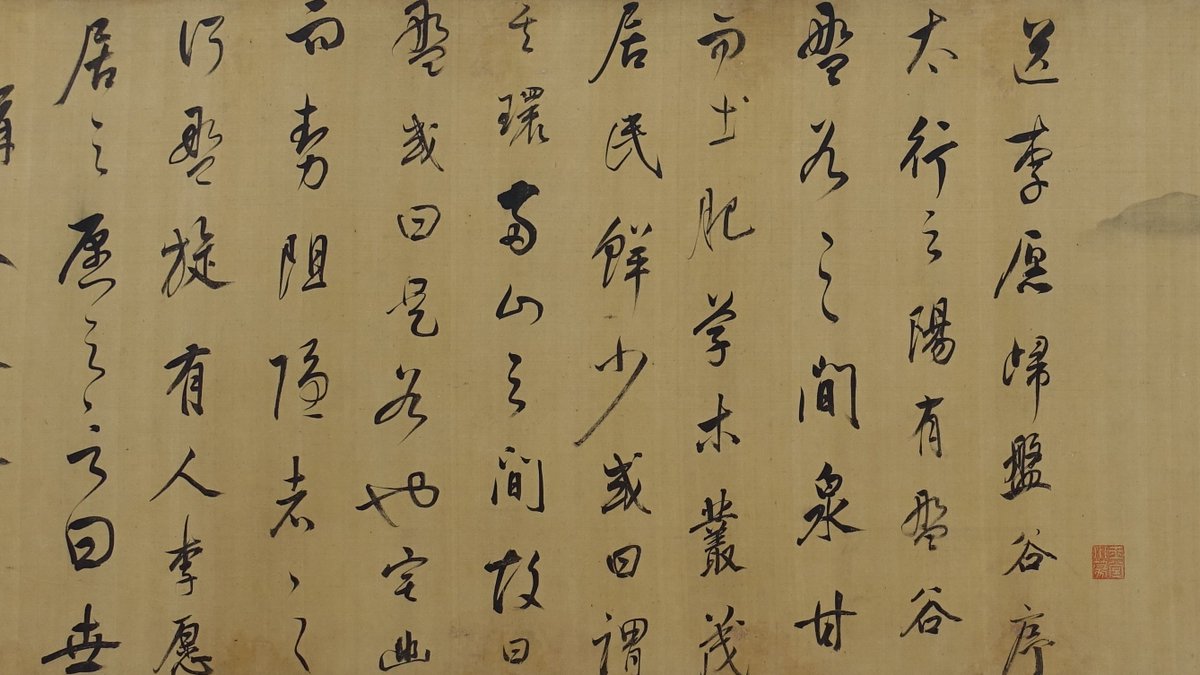 送李愿歸盤谷序
太行之陽有盤谷
盤谷之間泉甘
而土肥草木叢茂
居民鮮少或曰謂
其環兩山之間故曰
盤或曰是谷也宅幽
而勢阻隱者之
所盤旋有人李愿
居之愿之言曰世